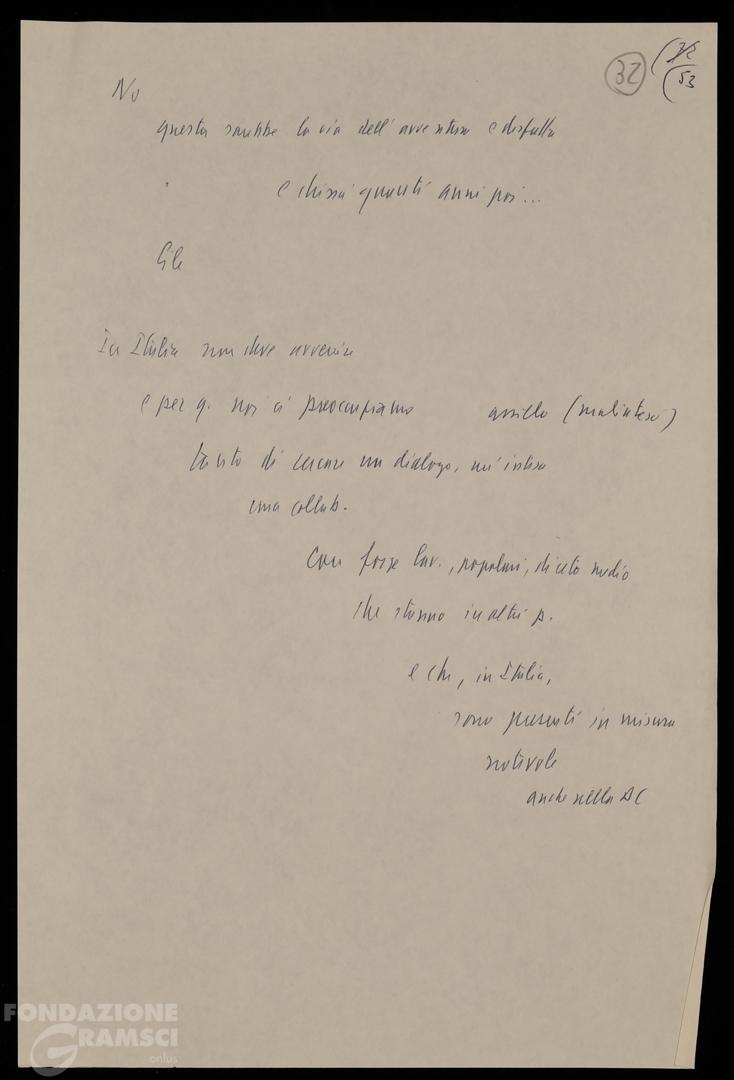 32
53
No
questa sarebbe la via dell'avventura e disfatta
e chissà quanti anni poi...
Cile
In Italia non deve avvenire
e per q. noi ci preoccupiamo assillo (malinteso)
tanto di cercare un dialogo, un'intesa
una collab.
Con forze lav., popolari, di ceto medio
che stanno in altri p.
e che, in Italia,
sono presenti in misura
notevole
anche nella DC
FONDAZIONE
GRAMSCI
onlus